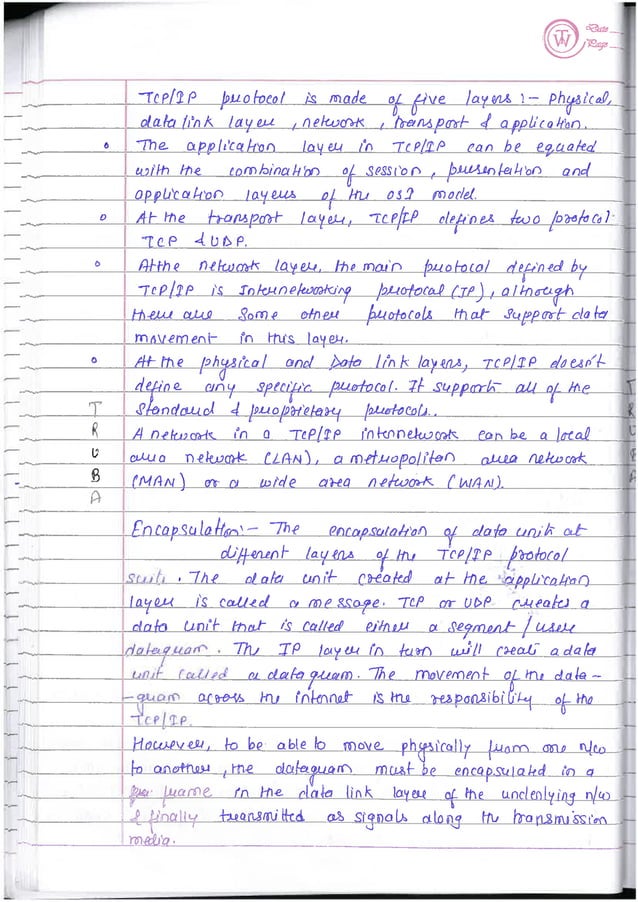 TW
Date
Page
TCP/IP protocol is made of five layers :- Physical,
data link layer, network, transport & application.
The application layer in TCP/IP can be equated
with the combination of session, presentation and
application layers of the OSI model.
At the transport layer, TCP/IP defines two protocol:
TCP & UDP.
At the network layer, the main protocol defined by
TCP/IP is Internetworking protocol (IP), although
there are some other protocols that support data
movement in this layer.
At the physical and Data link layers, TCP/IP doesn't
define any specific protocol. It supports all of the
Standard & proprietary protocols..
A network in a TCP/IP internetwork can be a local
area network (LAN), a metropolitan area network
(MAN) or a wide area network (WAN).
T
R
U
B
A
Encapsulation:- The encapsulation of data units at
different layers of the TCP/IP protocol
suite. The data unit created at the application
layer is called a message. TCP or UDP creates a
data unit that is called either a segment / user
datagram. The IP layer in turn will create a data
unit called a datagram. The movement of the data-
-gram across the internet is the responsibility of the
TCP/IP.
However, to be able to move physically from one n/w
to another, the datagram must be encapsulated in a
frame in the data link layer of the underlying n/w
& finally transmitted as signals along the transmission
media.